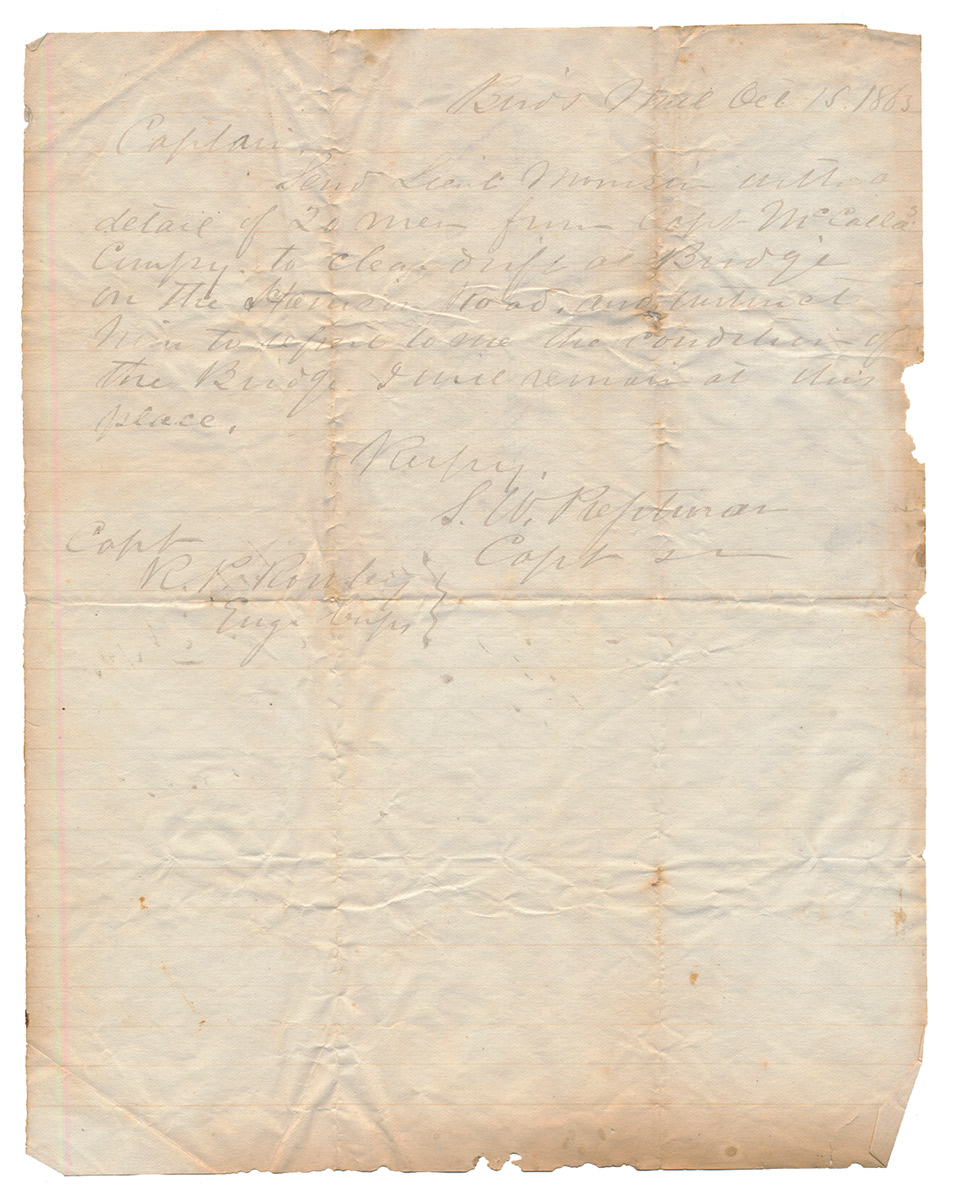 Bird's Mill Oct 15 1863
Captain
Send Lieut Morrison with a
detail of 20 men from Capt McCalla's
Compy. to clear drift at Bridge
on the Harrison Road, and instruct
him to report to me the condition of
the Bridge. I will remain at this
place.
Respy.
S. W. Presstman
Capt
Capt
R. P. Rowley
Eng. Corps